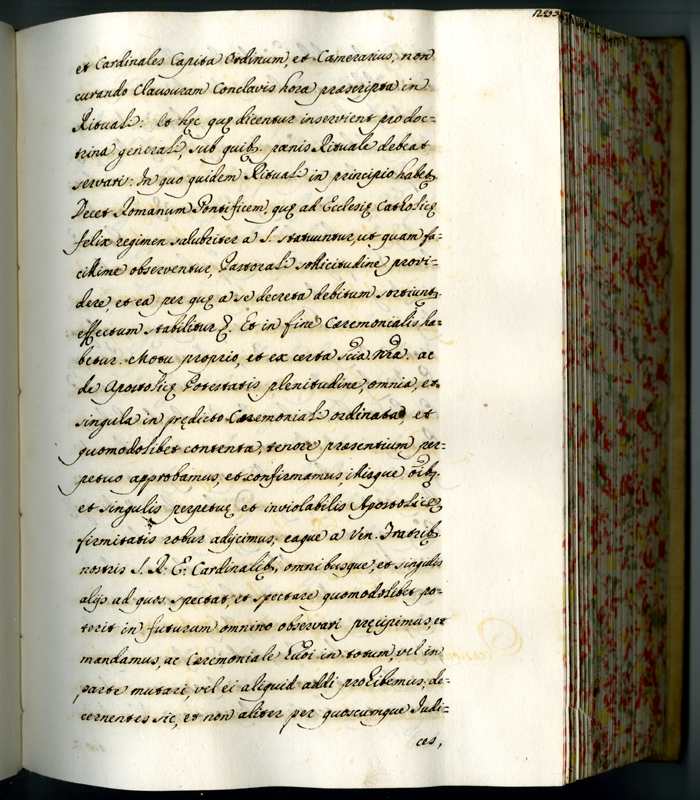 1233
et Cardinales Capita Ordinum, et Camerarius, non
curando Clausuram Conclavis hora præscripta in
Rituali: Et hęc quę dicentur inservient pro doc=
trina generali, sub quib. pænis Rituale debeat
servari: In quo quidem Rituali in principio habet.
Decet Romanum Pontificem, quę ad Ecclesię Catholicę
felix regimen salubriter a S. statuuntur, ut quam fa=
cillime observentur, Pastorali sollicitudine provi=
dere, et ea per quę a se decreta debitum sortiunt.
effectum stabilitur &. Et in fine Cæremonialis ha=
betur. Motu proprio, et ex certa scia nra. ac
de Apostolicę Potestatis plenitudine, omnia, et
singula in prędicto Cæremoniali ordinata, et
quomodolibet contenta, tenore præsentium per=
petuo approbamus, et confirmamus, illisque oib.
et singulis perpetuę et inviolabilis Apostolicę
firmitatis robur adijcimus; eaque a Ven. Fratrib.
nostris S. R. E. Cardinalib., omnibusque, et singulis
alijs ad quos spectat, et spectare quomodolibet po=
terit in futurum omnino observari pręcipimus, et
mandamus, ac Cæremoniale huoi in totum, vel in
parte mutari, vel ei aliquid addi prohibemus, de=
cernentes sic, et non aliter per quoscumque Judi=
ces,